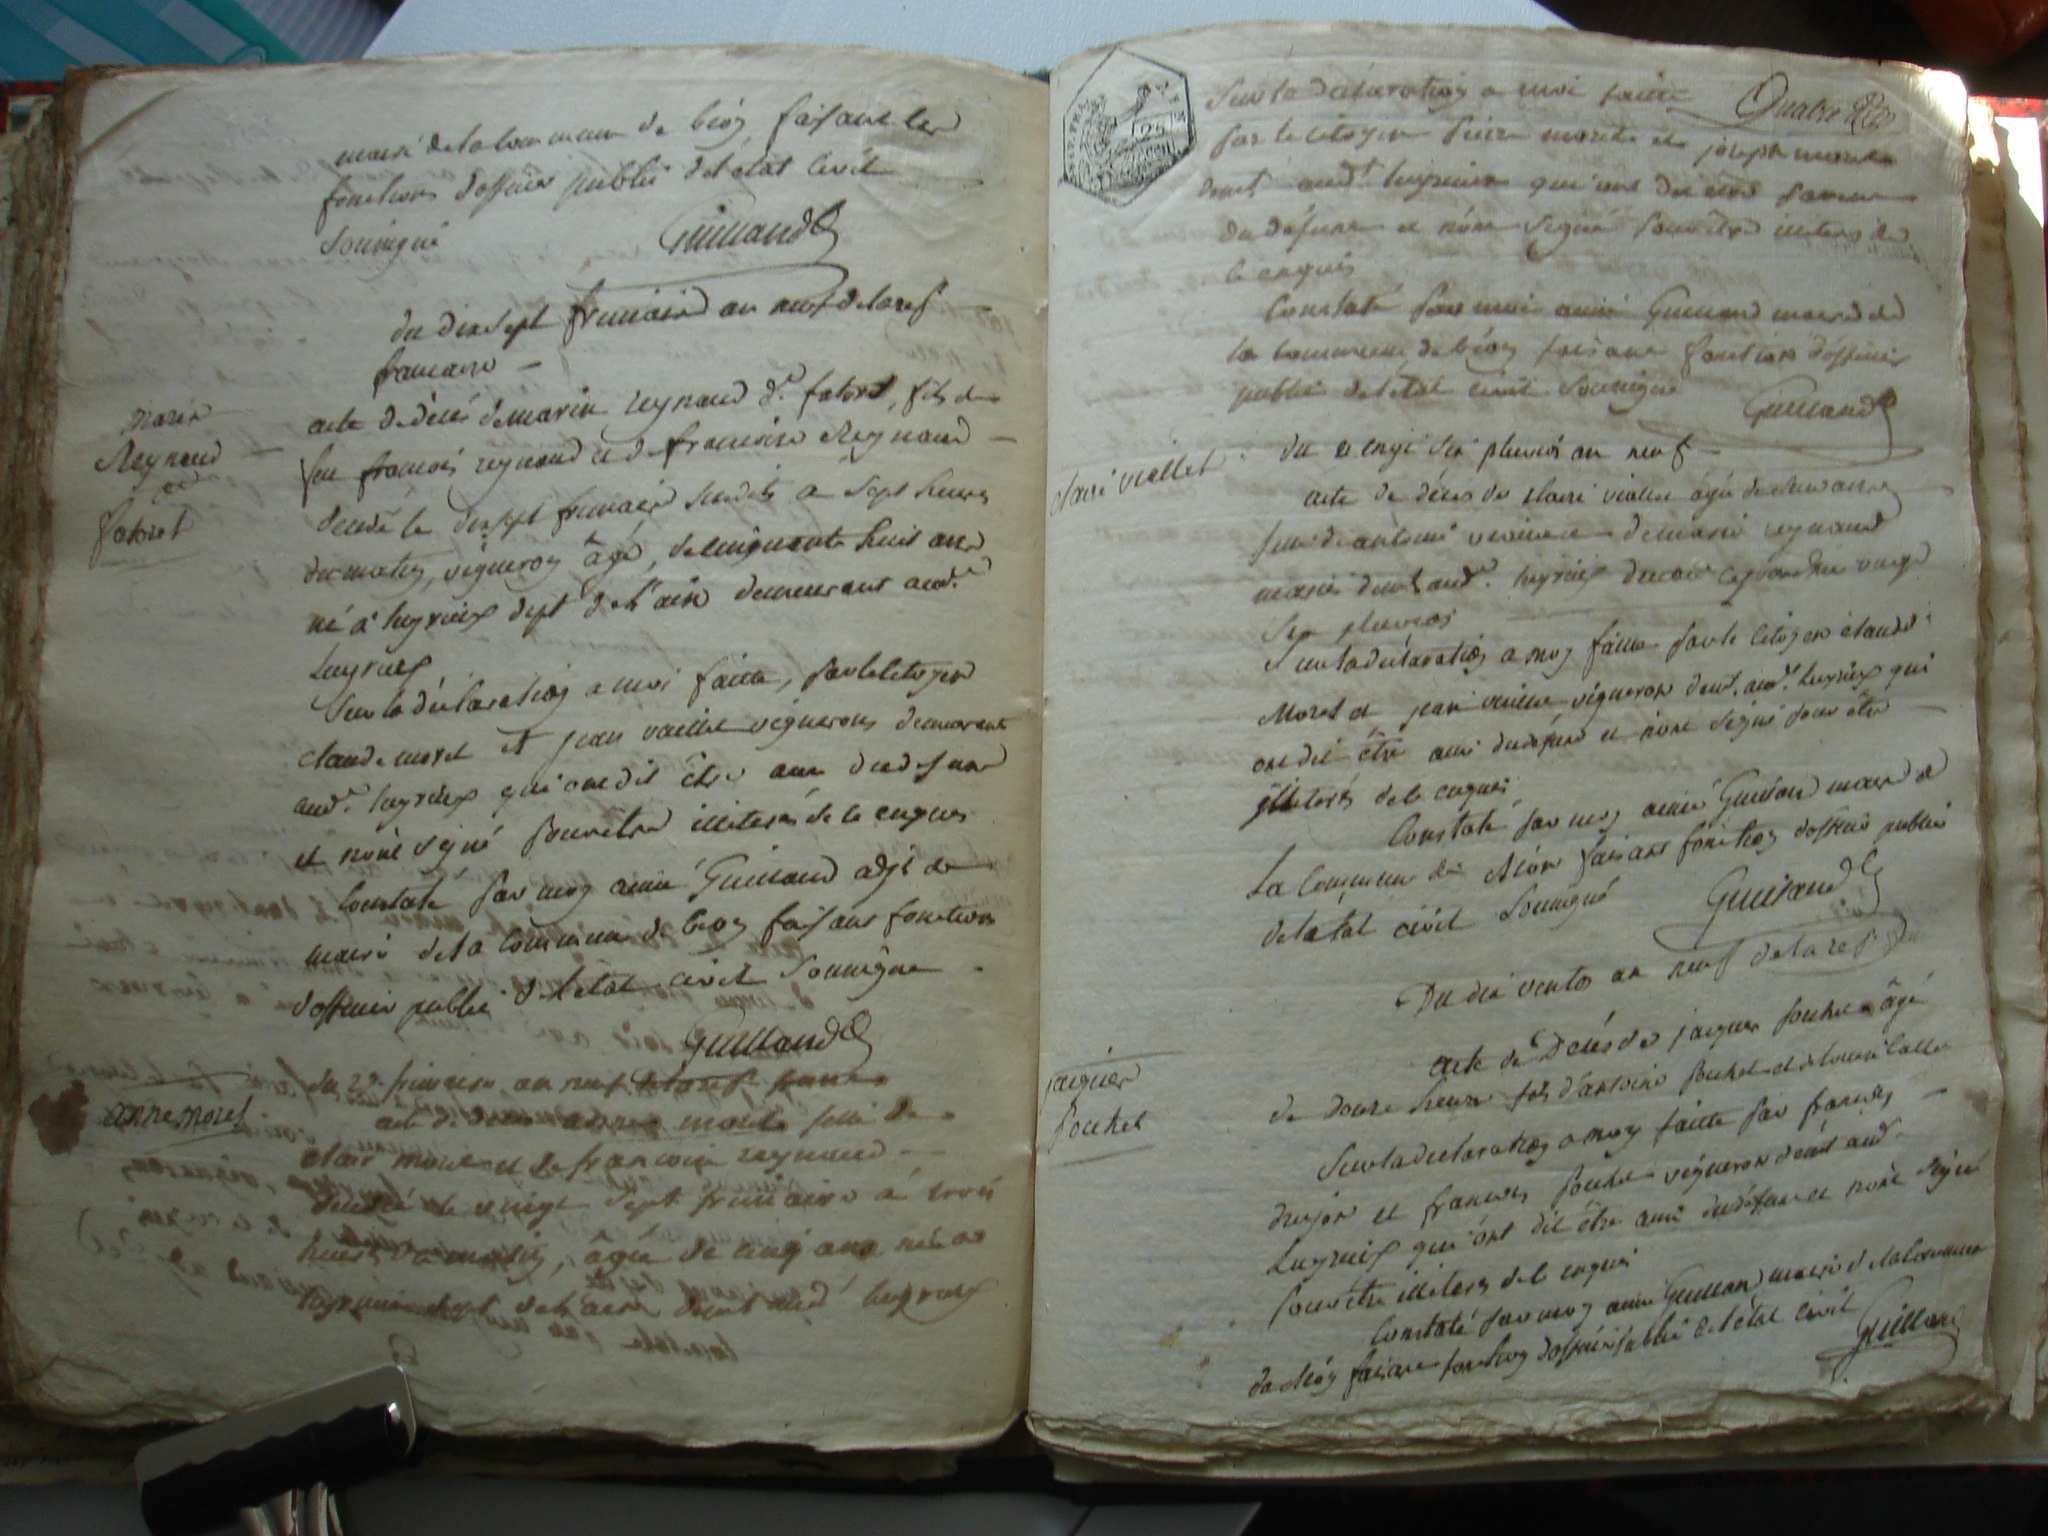 maire de la commune de béon faisant les
fonctions d'officier public de l'état civil
soussigné Guillaud
du dix sept frimaire an neuf de la rep.
francaise
Marin
Reynaud
dit
fatoret
acte de décès de marin reynaud dt. fatoret, fils de
feu francois reynaud et de francoise Reynaud
décédé le dix sept frimaire susdit a sept heures
du matin, vigneron âgé, de cinquante huit ans
né à luyrieux dept. de l'ain demeurant aud.
luyrieux
Sur la déclaration a moi faitte, par le citoyen
claude moret et jean vaillet vignerons demeurant
aud. luyrieux qui ont dit être amis du defunt
et n'ont signé pour etre illiterés de ce enquis
Constaté par moy aimé Guillaud adjt. de
maire de la commune de béon faisant fonction
d'officier public de l'état civil soussigné
Guillaud
du 27 frimaire an neuf de la rep. franc.
anne moret
acte de décès anne moret fille de
clair moret et de francoise reynaud
décédée le vingt sept frimaire à trois
heures du matin, âgée de cinq ans née a
luyrieux dept. de l'ain demt. aud. luyrieux
Quatre
Sur la déclaration a moi faitte
par le citoyen moret et joseph moret
demt. aud. luyrieux qui ont dit etre
du défunt et n'ont signé pour être illiterés de
ce enquis
Constaté par moi aimé Guillaud maire de
la commune de béon faisant fonction d'officier
public de l'état civil soussigné
Guillaud
du vingt six pluvios an neuf
clairé viallet
acte de décès de clairé viallet âgée de deux ans
de antoine et de marie reynaud
mariés demt. aud. luyrieux vingt
six pluvios
Sur la déclaration a moy faitte par le citoyen claude
Moret et jean vaillet vigneron demt. aud. luyrieux qui
ont dit être amis du défunt et n'ont signé pour être
illiterés de ce enquis
Constaté par moy aimé Guillaud maire de
La Commune de Béon faisant fonction d'officier public
de l'état civil soussigné Guillaud
Du dix ventos an neuf de la rep.
jacques
pouchet
acte de Décès de jacques pouchet âgé
de douze heures fils d'antoine pouchet et de
Sur la déclaration a moy faitte par francois
drujon et francois pouchet vigneron demt. aud.
Luyrieux qui ont dit être amis du défunt et n'ont signé
pour être illiterés de ce enquis
Constaté par moy aimé Guillaud maire de la commune
de Béon faisant fonction d'officier public de l'état civil
Guillaud